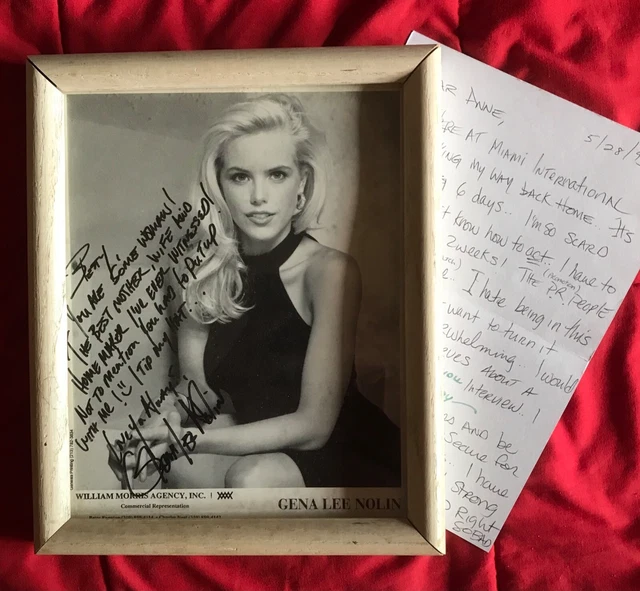 BETTY
YOU ARE SOME WOMAN!!
THE BEST MOTHER, WIFE AND
HOME MAKER I'VE EVER WITNESSED!
NOT TO MENTION YOU HAD TO PUT UP
WITH ME! I TIP MY HAT
LOVE ALWAYS
WILLIAM MORRIS AGENCY, INC.
Commercial Representation
GENA LEE NOLIN
ANNE,
5/28/
AT MIAMI INTERNATIONAL
MY WAY BACK HOME.. ITS
6 DAYS.. I'M SO SCARD
KNOW HOW TO ACT. I HAVE TO
2 WEEKS! THE P.R. PEOPLE
I HATE BEING IN THIS
WANT TO TURN IT
I WOULD
ABOUT A
INTERVIEW.. I
AND BE
SECURE FOR
I HAVE
STRONG
RIGHT